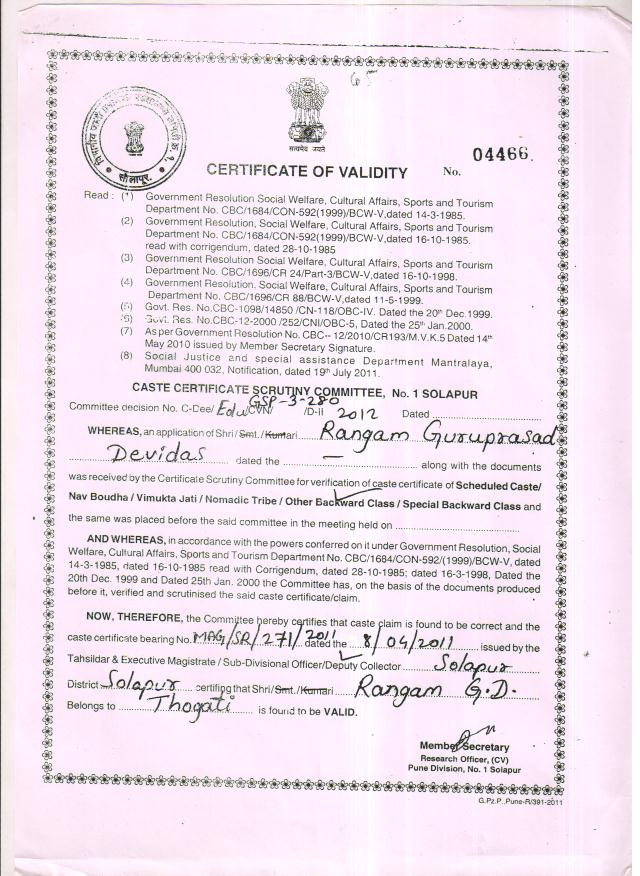 65
सत्यमेव जयते
सोलापूर.
CERTIFICATE OF VALIDITY No. 04466.
Read : (1) Government Resolution Social Welfare, Cultural Affairs, Sports and Tourism
Department No. CBC/1684/CON-592(1999)/BCW-V,dated 14-3-1985.
(2) Government Resolution Social Welfare, Cultural Affairs, Sports and Tourism
Department No. CBC/1684/CON-592(1999)/BCW-V,dated 16-10-1985.
read with corrigendum, dated 28-10-1985
(3) Government Resolution Social Welfare, Cultural Affairs, Sports and Tourism
Department No. CBC/1696/CR 24/Part-3/BCW-V,dated 16-10-1998.
(4) Government Resolution Social Welfare, Cultural Affairs, Sports and Tourism
Department No. CBC/1696/CR 88/BCW-V,dated 11-5-1999.
(5) Govt. Res. No.CBC-1098/14850 /CN-118/OBC-IV. Dated the 20th Dec.1999.
(6) Govt. Res. No.CBC-12-2000 /252/CNI/OBC-5, Dated the 25th Jan.2000.
(7) As per Government Resolution No. CBC-- 12/2010/CR193/M.V.K.5 Dated 14th
May 2010 issued by Member Secretary Signature.
(8) Social Justice and special assistance Department Mantralaya,
Mumbai 400 032, Notification, dated 19th July 2011.
CASTE CERTIFICATE SCRUTINY COMMITTEE, No. 1 SOLAPUR
GSP-3-280
Committee decision No. C-Dee/ Edu/CVN/ /D-II 2012 Dated
WHEREAS, an application of Shri / Smt. / Kumari Rangam Guruprasad
Devidas dated the — along with the documents
was received by the Certificate Scrutiny Committee for verification of caste certificate of Scheduled Caste/
Nav Boudha / Vimukta Jati / Nomadic Tribe / Other Backward Class / Special Backward Class and
the same was placed before the said committee in the meeting held on
AND WHEREAS, in accordance with the powers conferred on it under Government Resolution, Social
Welfare, Cultural Affairs, Sports and Tourism Department No. CBC/1684/CON-592/(1999)/BCW-V, dated
14-3-1985, dated 16-10-1985 read with Corrigendum, dated 28-10-1985; dated 16-3-1998, Dated the
20th Dec. 1999 and Dated 25th Jan. 2000 the Committee has, on the basis of the documents produced
before it, verified and scrutinised the said caste certificate/claim.
NOW, THEREFORE, the Committee hereby certifies that caste claim is found to be correct and the
caste certificate bearing No. MAG/SR/271/2011 dated the 8/04/2011 issued by the
Tahsildar & Executive Magistrate / Sub-Divisional Officer/Deputy Collector Solapur
District Solapur certifing that Shri/Smt./Kumari Rangam G.D.
Belongs to Thogati is found to be VALID.
Member Secretary
Research Officer, (CV)
Pune Division, No. 1 Solapur
G.Pz.P.,Pune-R/391-2011